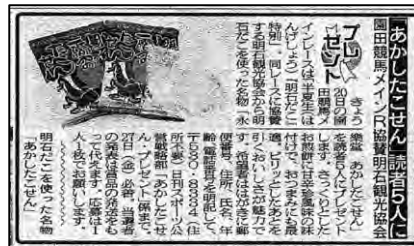 「あかしたこせん」読者5人に
園田競馬メインR協賛明石観光協会
プレゼント
きょう
20日の園
田競馬メ
インレースは、半夏生(は
んげしょう)「明石だこ
特別」。同レースに協賛
する明石観光協会から明
石だこを使った名物「永
楽堂 あかしたこせん」
を読者5人にプレゼント
します。さっくりとした
お煎餅に甘辛金風味の味
付けで、おつまみにも最
適。ピリッとしたあとを
引くおいしさが魅力で
す。希望者ははがきに郵
便番号、住所、氏名、年
齢、電話番号を明記して、
〒530・8334(住
所不要)日刊スポーツ公
営競馬面「あかしたこせ
ん・プレゼント」係まで。
27日(金)必着。当選者
の発表は賞品の発送をも
って代えます。応募は1
人1枚でお願いします。
明石だこを使った名物
「あかしたこせん」